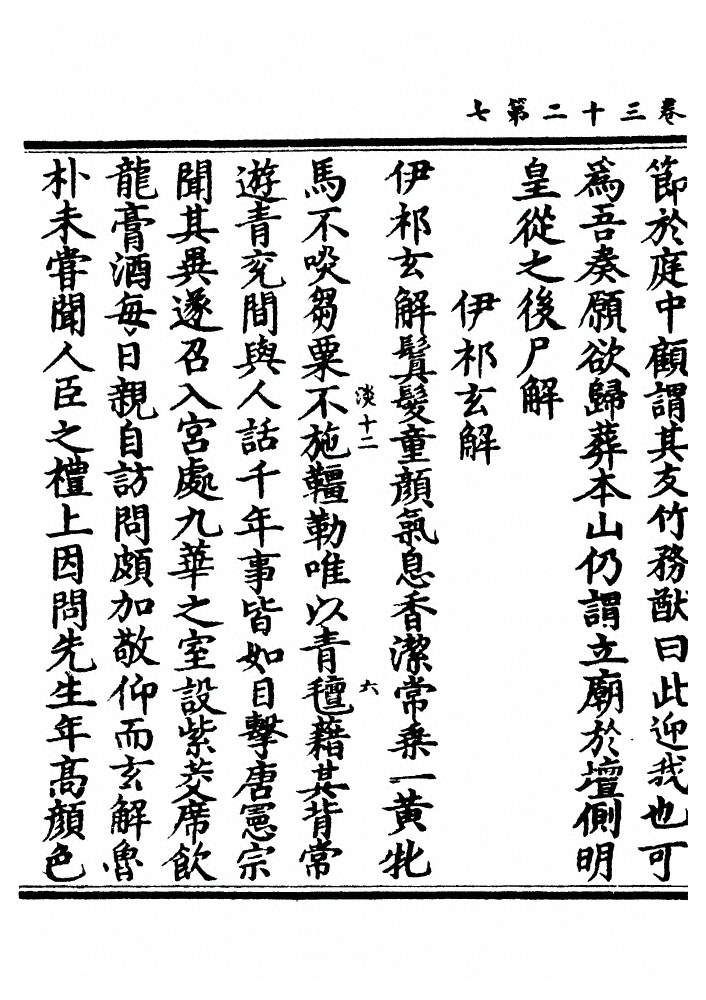 卷三十二第七
節於庭中顧謂其友竹務猷曰此迎我也可
爲吾奏願欲歸葬本山仍謂立廟於壇側明
皇從之後尸解
伊祁玄解
伊祁玄解鬒髮童顏氣息香潔常乘一黃牝
淡十二
六
馬不啖芻粟不施韁勒唯以青氊藉其背常
遊青兖間與人話千年事皆如目擊唐憲宗
聞其異遂召入宮處九華之室設紫茭席飲
龍膏酒每日親自訪問頗加敬仰而玄解魯
朴未嘗聞人臣之禮上因問先生年高顏色